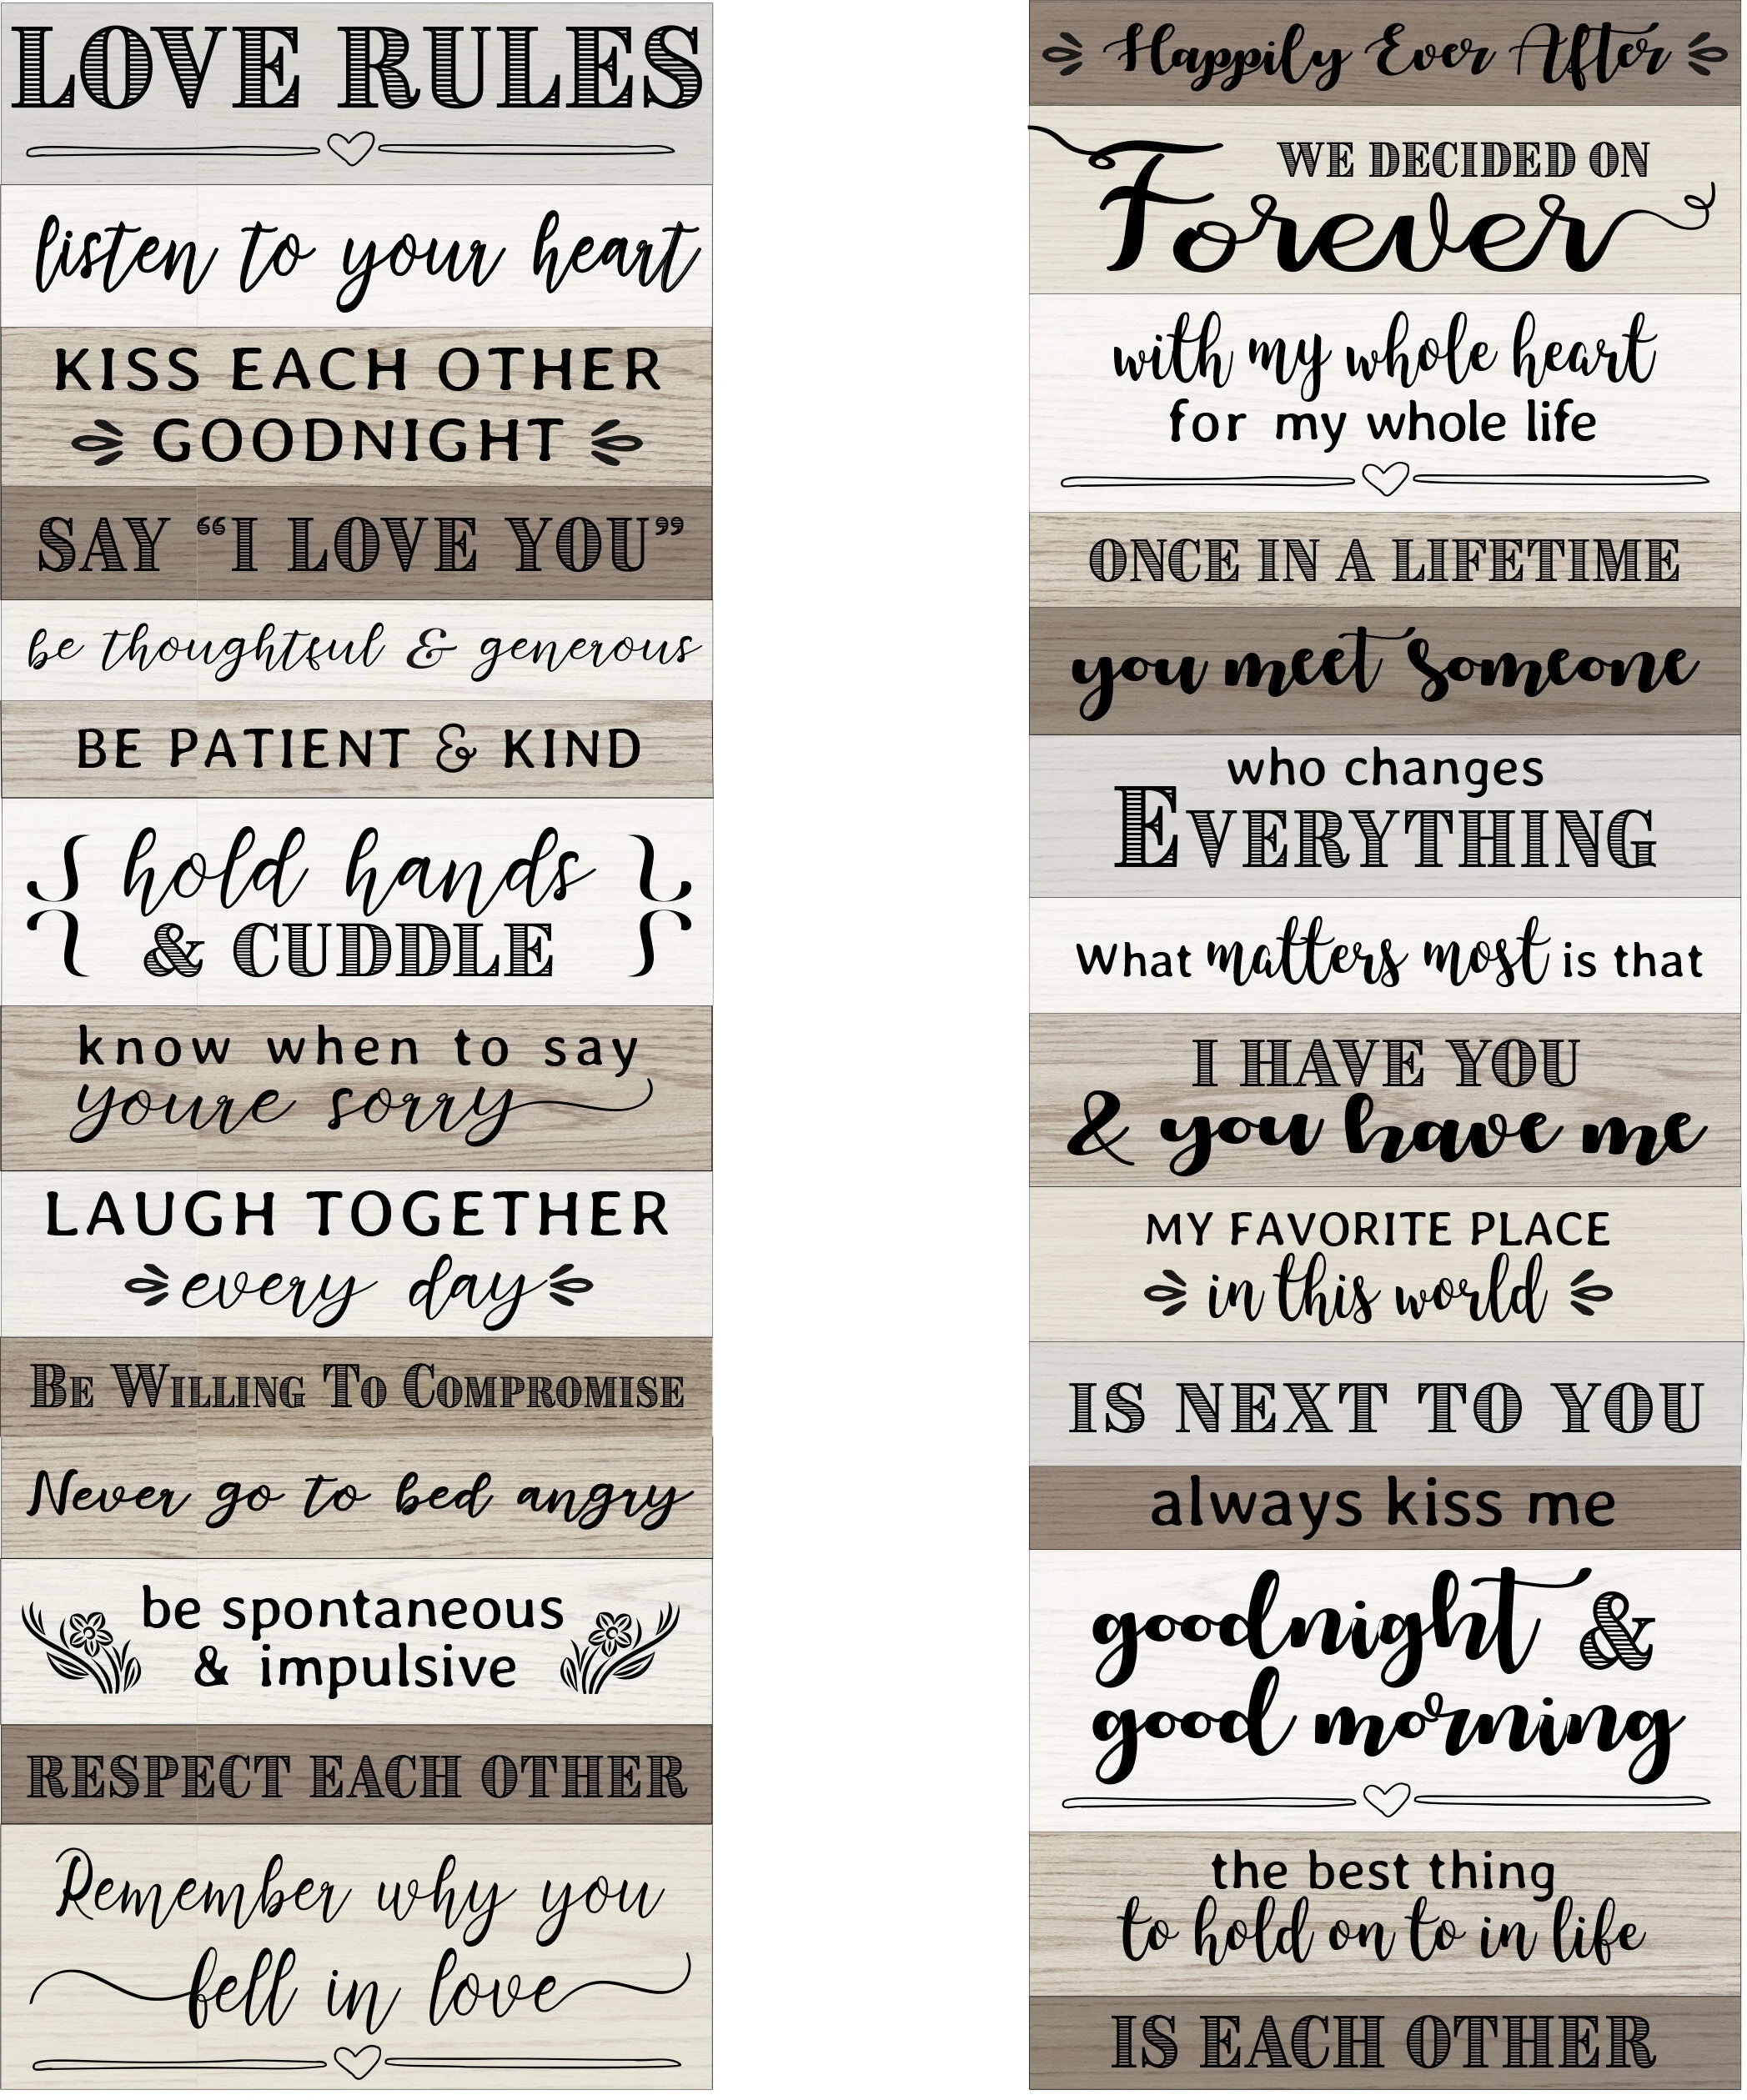 LOVE RULES
listen to your heart
KISS EACH OTHER
GOODNIGHT
SAY “I LOVE YOU”
be thoughtful & generous
BE PATIENT & KIND
hold hands
& CUDDLE
know when to say
youre sorry
LAUGH TOGETHER
every day
BE WILLING TO COMPROMISE
Never go to bed angry
be spontaneous
& impulsive
RESPECT EACH OTHER
Remember why you
fell in love
Happily Ever After
WE DECIDED ON
Forever
with my whole heart
for my whole life
ONCE IN A LIFETIME
you meet Someone
who changes
EVERYTHING
What matters most is that
I HAVE YOU
& you have me
MY FAVORITE PLACE
in this world
IS NEXT TO YOU
always kiss me
goodnight &
good morning
the best thing
to hold on to in life
IS EACH OTHER